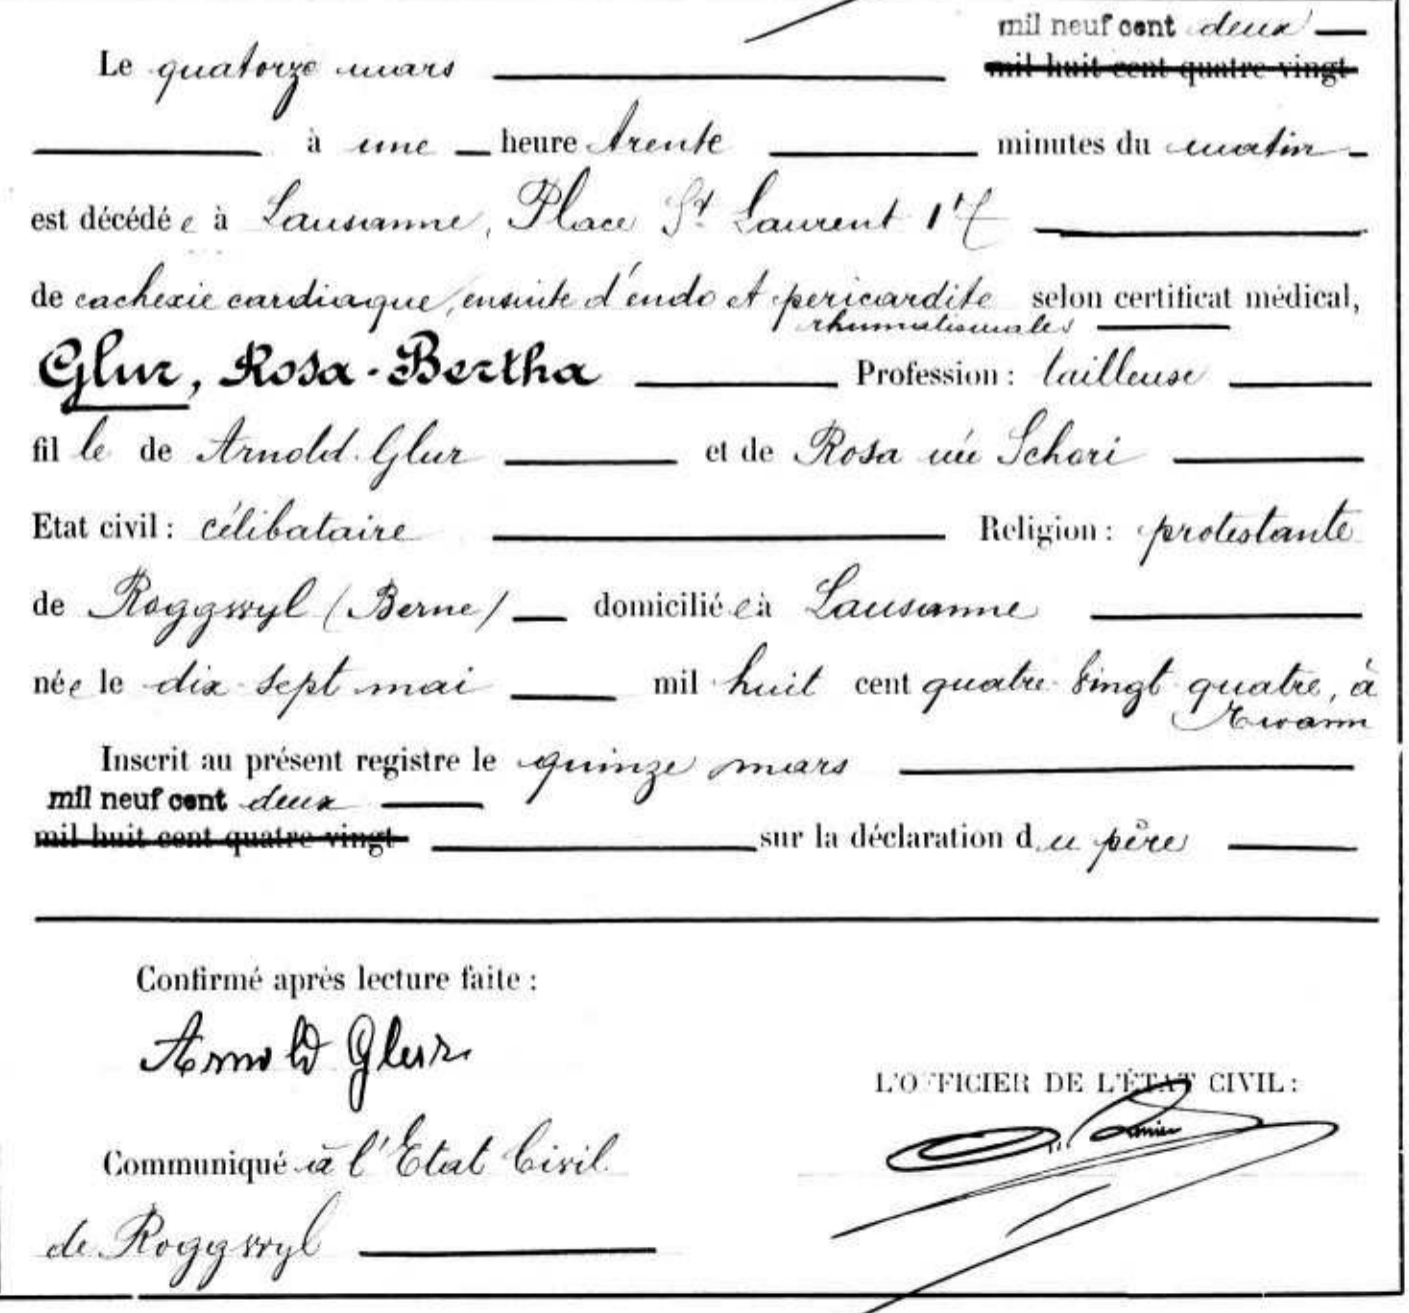 mil neuf cent deux
Le quatorze mars mil huit cent quatre-vingt
à une heure trente minutes du matin
est décédée à Lausanne, Place St Laurent 17
de cachexie cardiaque, ensuite d'endo et pericardite selon certificat médical,
rhumatismales
Glur, Rosa-Bertha Profession: tailleuse
fille de Arnold Glur et de Rosa née Schori
Etat civil: célibataire Religion: protestante
de Roggwyl (Berne) domiciliée à Lausanne
née le dix-sept mai mil huit cent quatre-vingt-quatre, à
Twann
Inscrit au présent registre le quinze mars
mil neuf cent deux
mil huit cent quatre-vingt sur la déclaration du père
Confirmé après lecture faite:
Arnold Glur
L'OFFICIER DE L'ÉTAT CIVIL:
Communiqué à l'Etat Civil
de Roggwyl